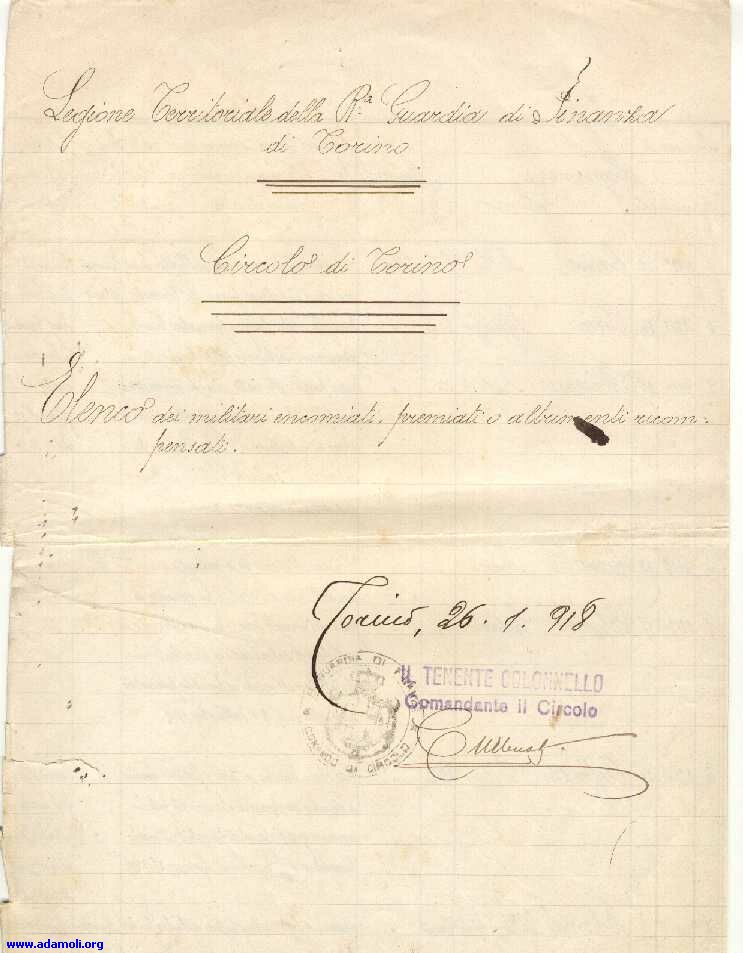 Legione Territoriale della Rª Guardia di Finanza
di Torino
Circolo di Torino
Elenco dei militari encomiati, premiati o altrimenti ricom-
pensati.
Torino, 26. 1. 918
GUARDIA DI FINANZA
COMANDO DI CIRCOLO
IL TENENTE COLONNELLO
Comandante il Circolo
www.adamoli.org